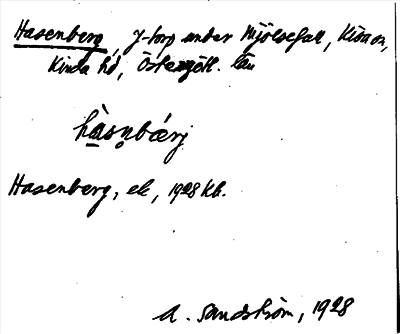 Hasenberg, f-torp under Mjölsefall, Kisa sn,
Kinda hd, Östergötl. län
hàsn̥bærj
Hasenberg, ek, 1928 Kb.
A. Sandström, 1928